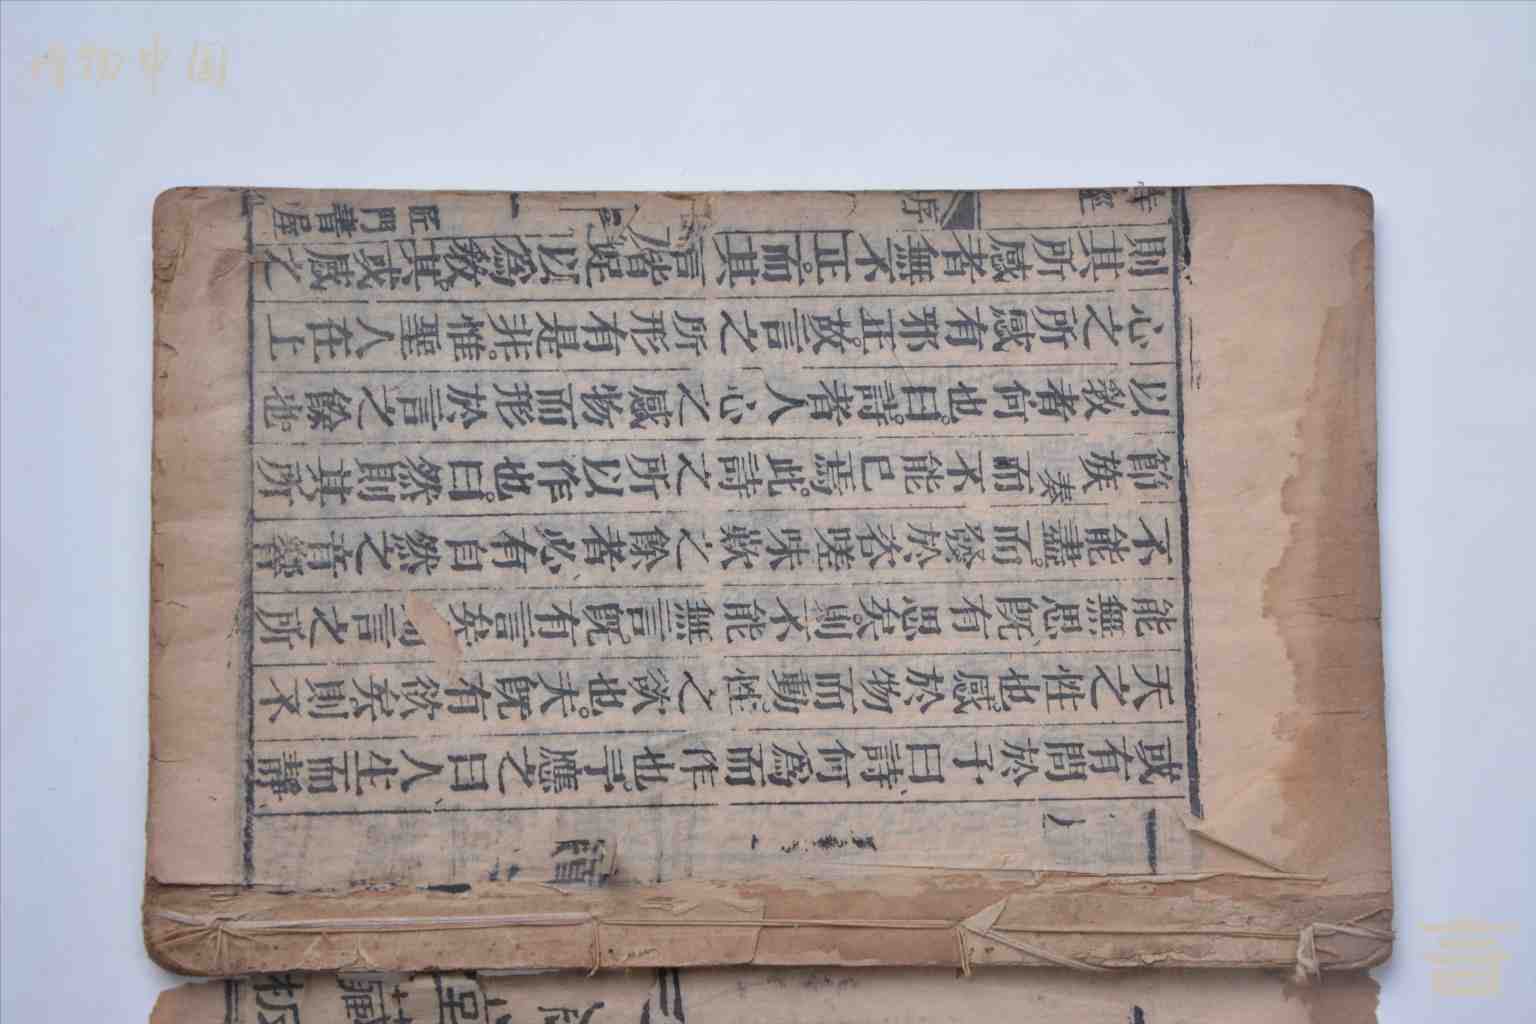 博物中国
或有問於予曰詩何爲而作也。予應之曰人生而靜
天之性也。感於物而動。性之欲也。夫既有欲矣則不
能無思既有思矣。則不能無言既有言矣言之所
不能盡。而發於咨嗟咏歎之餘者必有自然之音響
節族奏而不能已焉。此詩之所以作也。曰然則其所
以敎者何也。曰詩者人心之感物而形於言之餘也。
心之所感有邪正。故言之所形有是非。惟聖人在上
則其所感者無不正。而其言皆足以爲敎。其或感之
詩經
序
一
匠門書屋
堂藏板